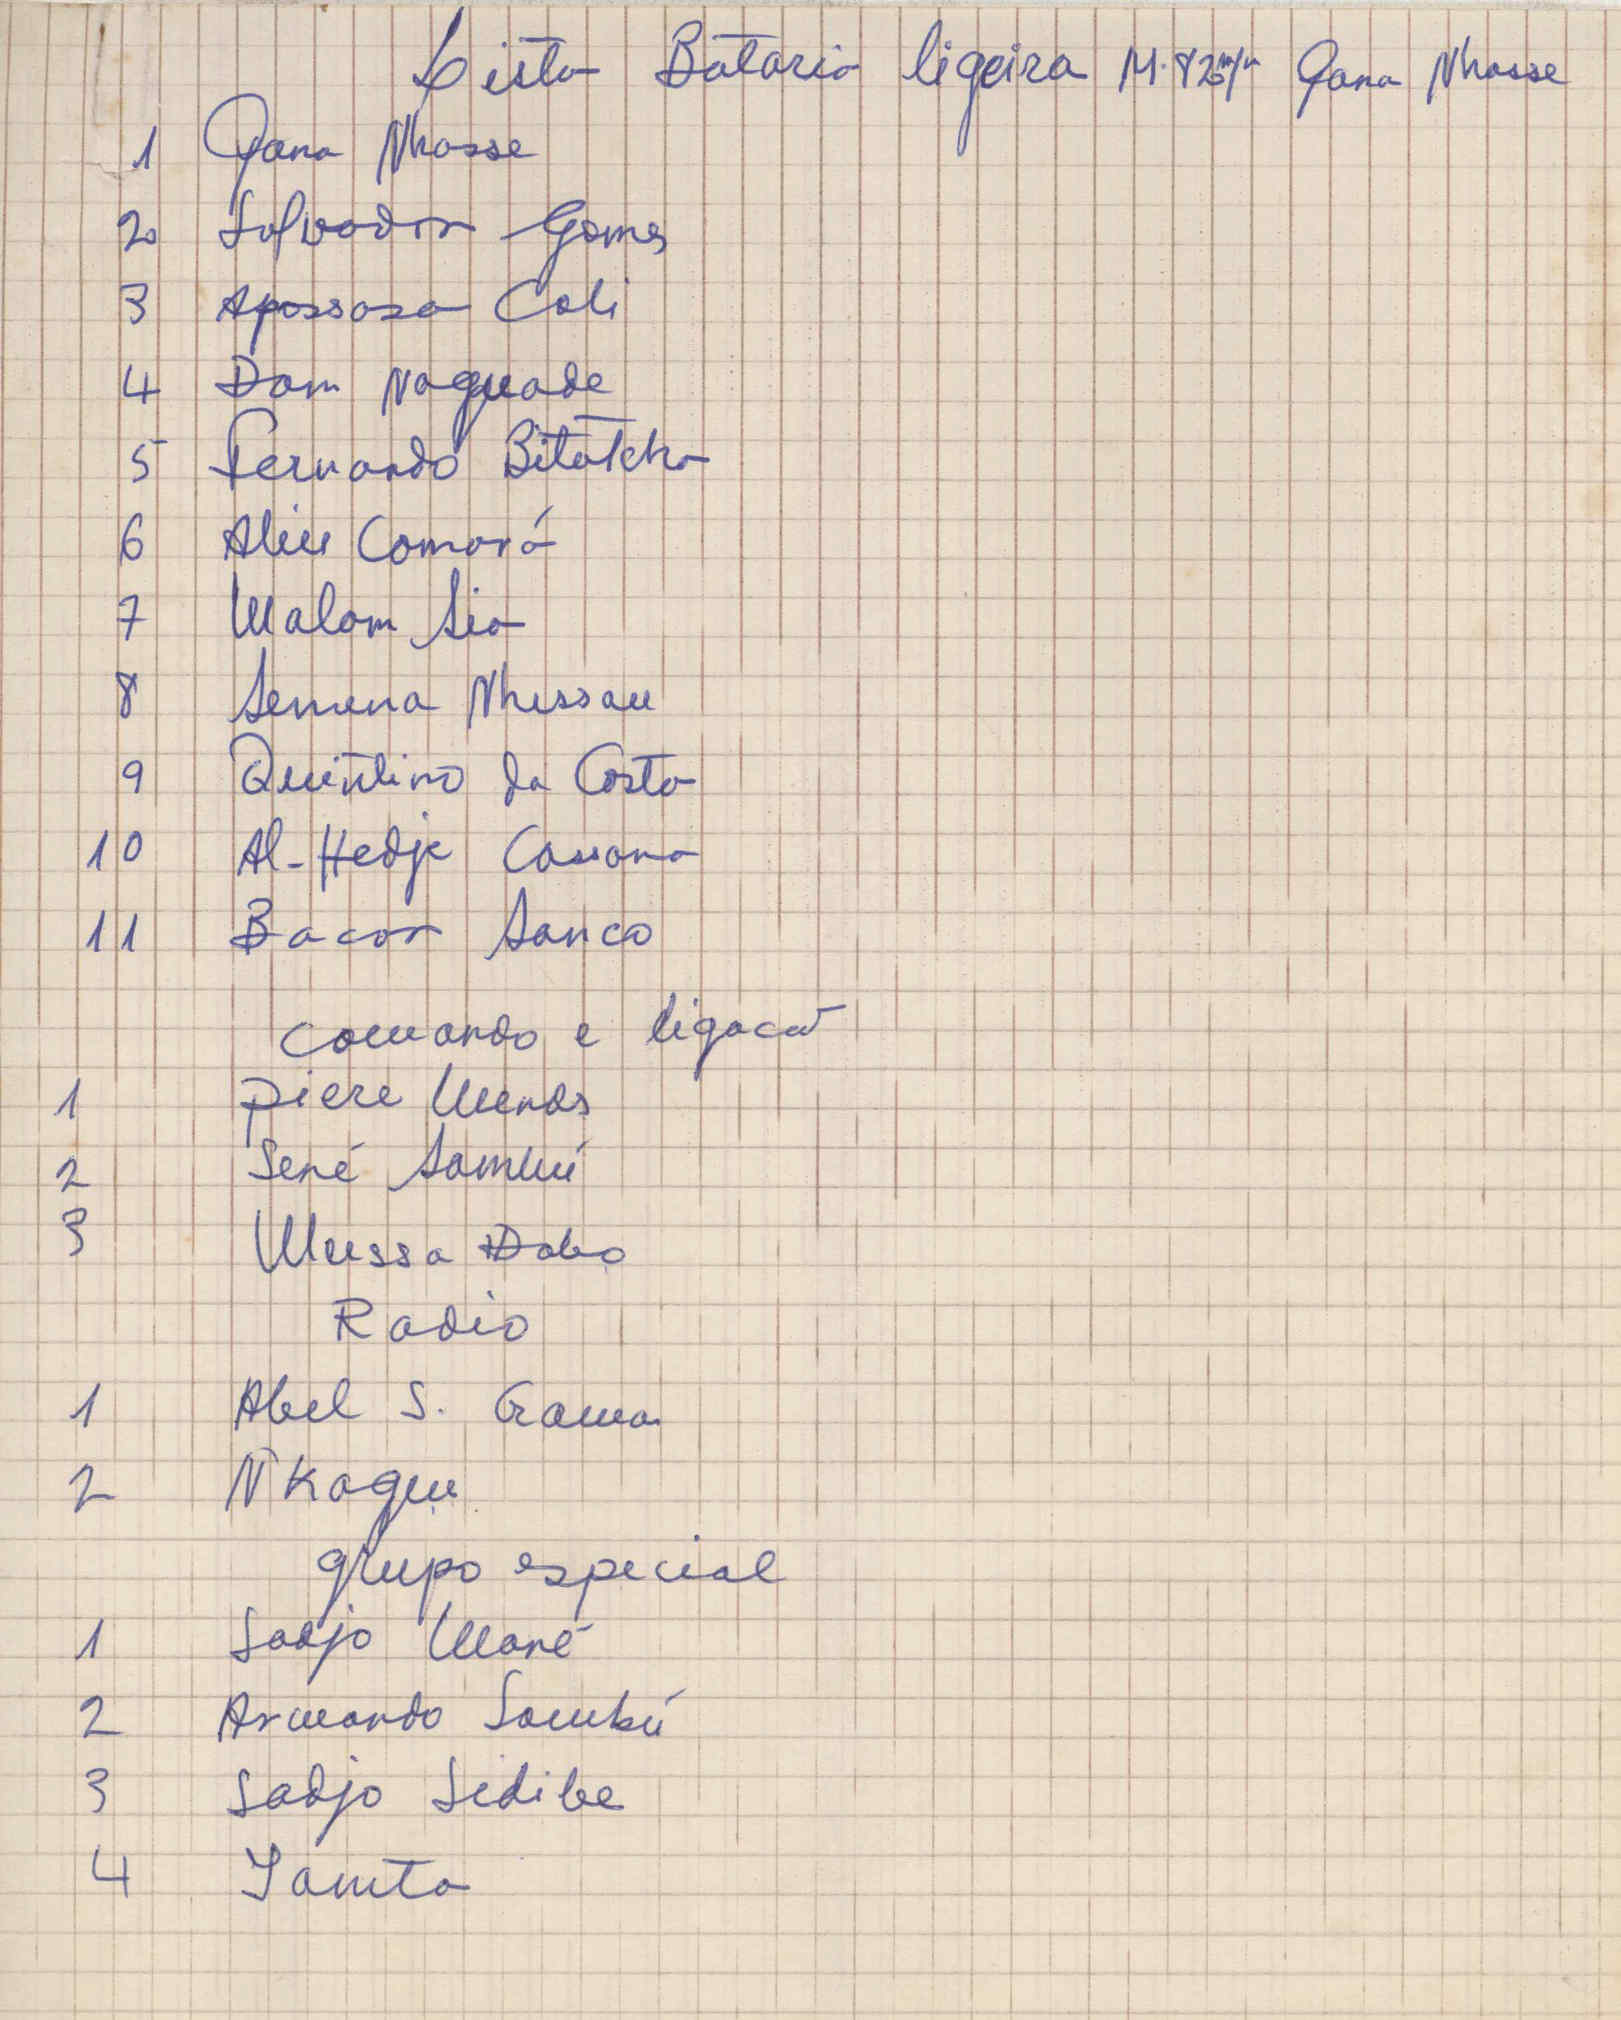 Lista Bataria ligeira M.82 m/m Qana Nhasse
1 Qana Nhasse
2 Salvador Gomes
3 Apossosa Coli
4 Dam Naguade
5 Fernando Bitatcha
6 Aliu Camará
7 Malam Sia
8 Semena Nhissau
9 Quintino da Costa
10 Al-Hedje Cassama
11 Bacar Sanco
comando e ligacaõ
1 piere Mends
2 Sené Sambú
3 Mussa Dabo
Radio
1 Abel S. Gama
2 N'Kague
grupo especial
1 Sadjo Mané
2 Armando Sambú
3 Sadjo Sidibe
4 Iamta